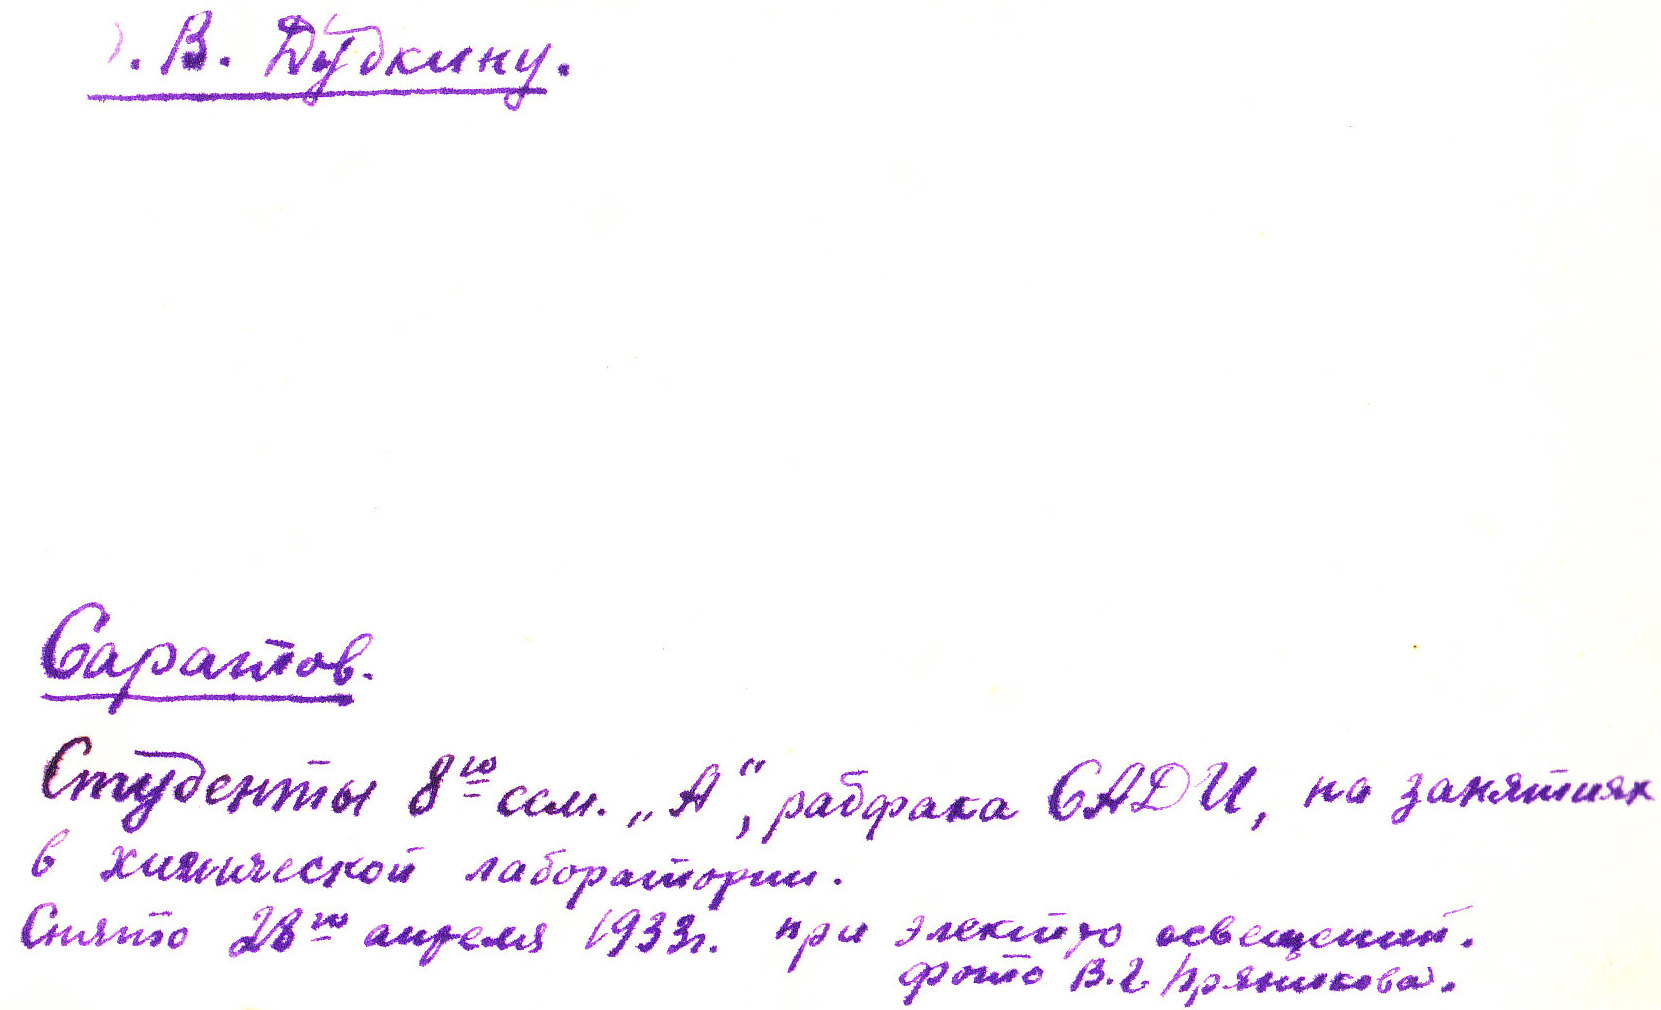 . В. Дудкину.
Саратов.
Студенты 8го сем. „А“, рабфака САДИ, на занятиях
в химической лаборатории.
Снято 28го апреля 1933г. при электро освещении.
фото В.Г. Пряникова.